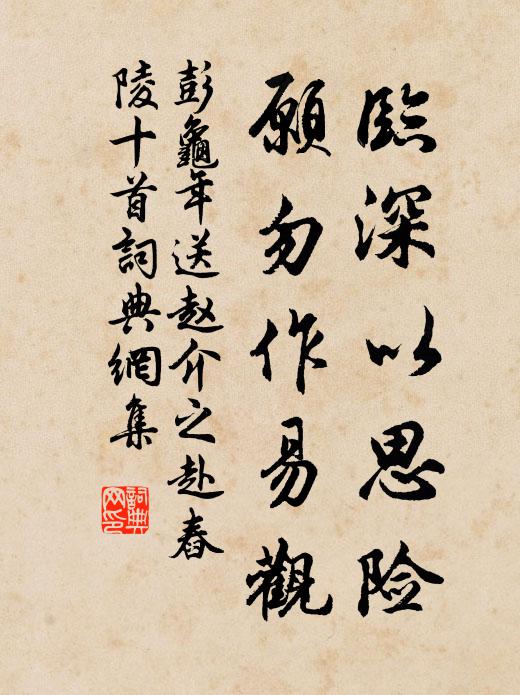 臨深以思险
願勿作易觀
彭龜年送赵介之赴舂
陵十首詞典網集
詞典
网印